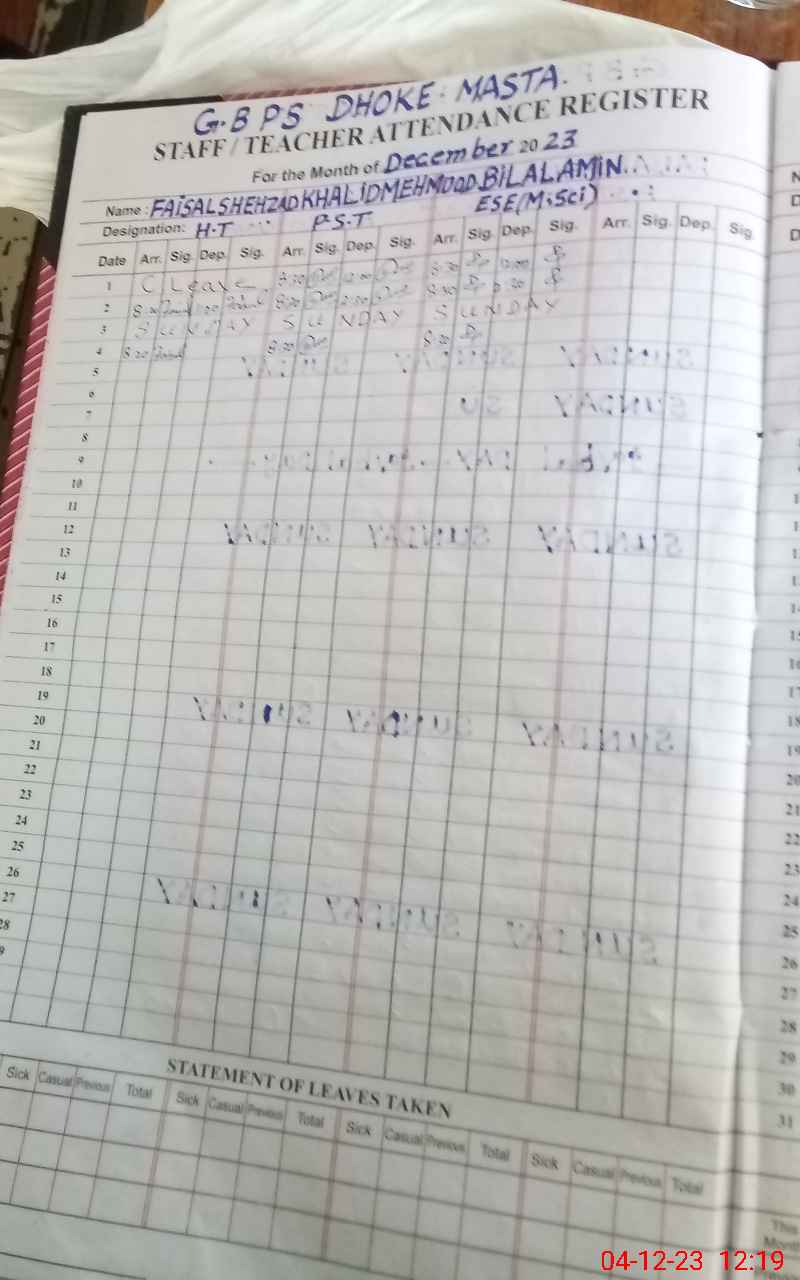 G.B PS DHOKE MASTA.
STAFF / TEACHER ATTENDANCE REGISTER
For the Month of December 2023
Name: FAISAL SHEHZAD KHALID MEHMOOD BILAL AMIN.
Designation: H.T P.S.T ESE(M.Sci)
Date Arr. Sig. Dep. Sig. Arr. Sig. Dep. Sig. Arr. Sig. Dep. Sig. Arr. Sig. Dep. Sig.
1 C Leave 8:30 12:00 8:30 12:00
2 8:30 8:30 8:30
3 SUNDAY SUNDAY SUNDAY
4 8:30 8:30 8:30
5
6
7
8
9
10
11
12
13
14
15
16
17
18
19
20
21
22
23
24
25
26
27
28
9
STATEMENT OF LEAVES TAKEN
Sick Casual Previous Total Sick Casual Previous Total Sick Casual Previous Total Sick Casual Previous Total
18
19
20
21
22
23
24
25
26
27
28
29
30
31
This
Month
04-12-23 12:19